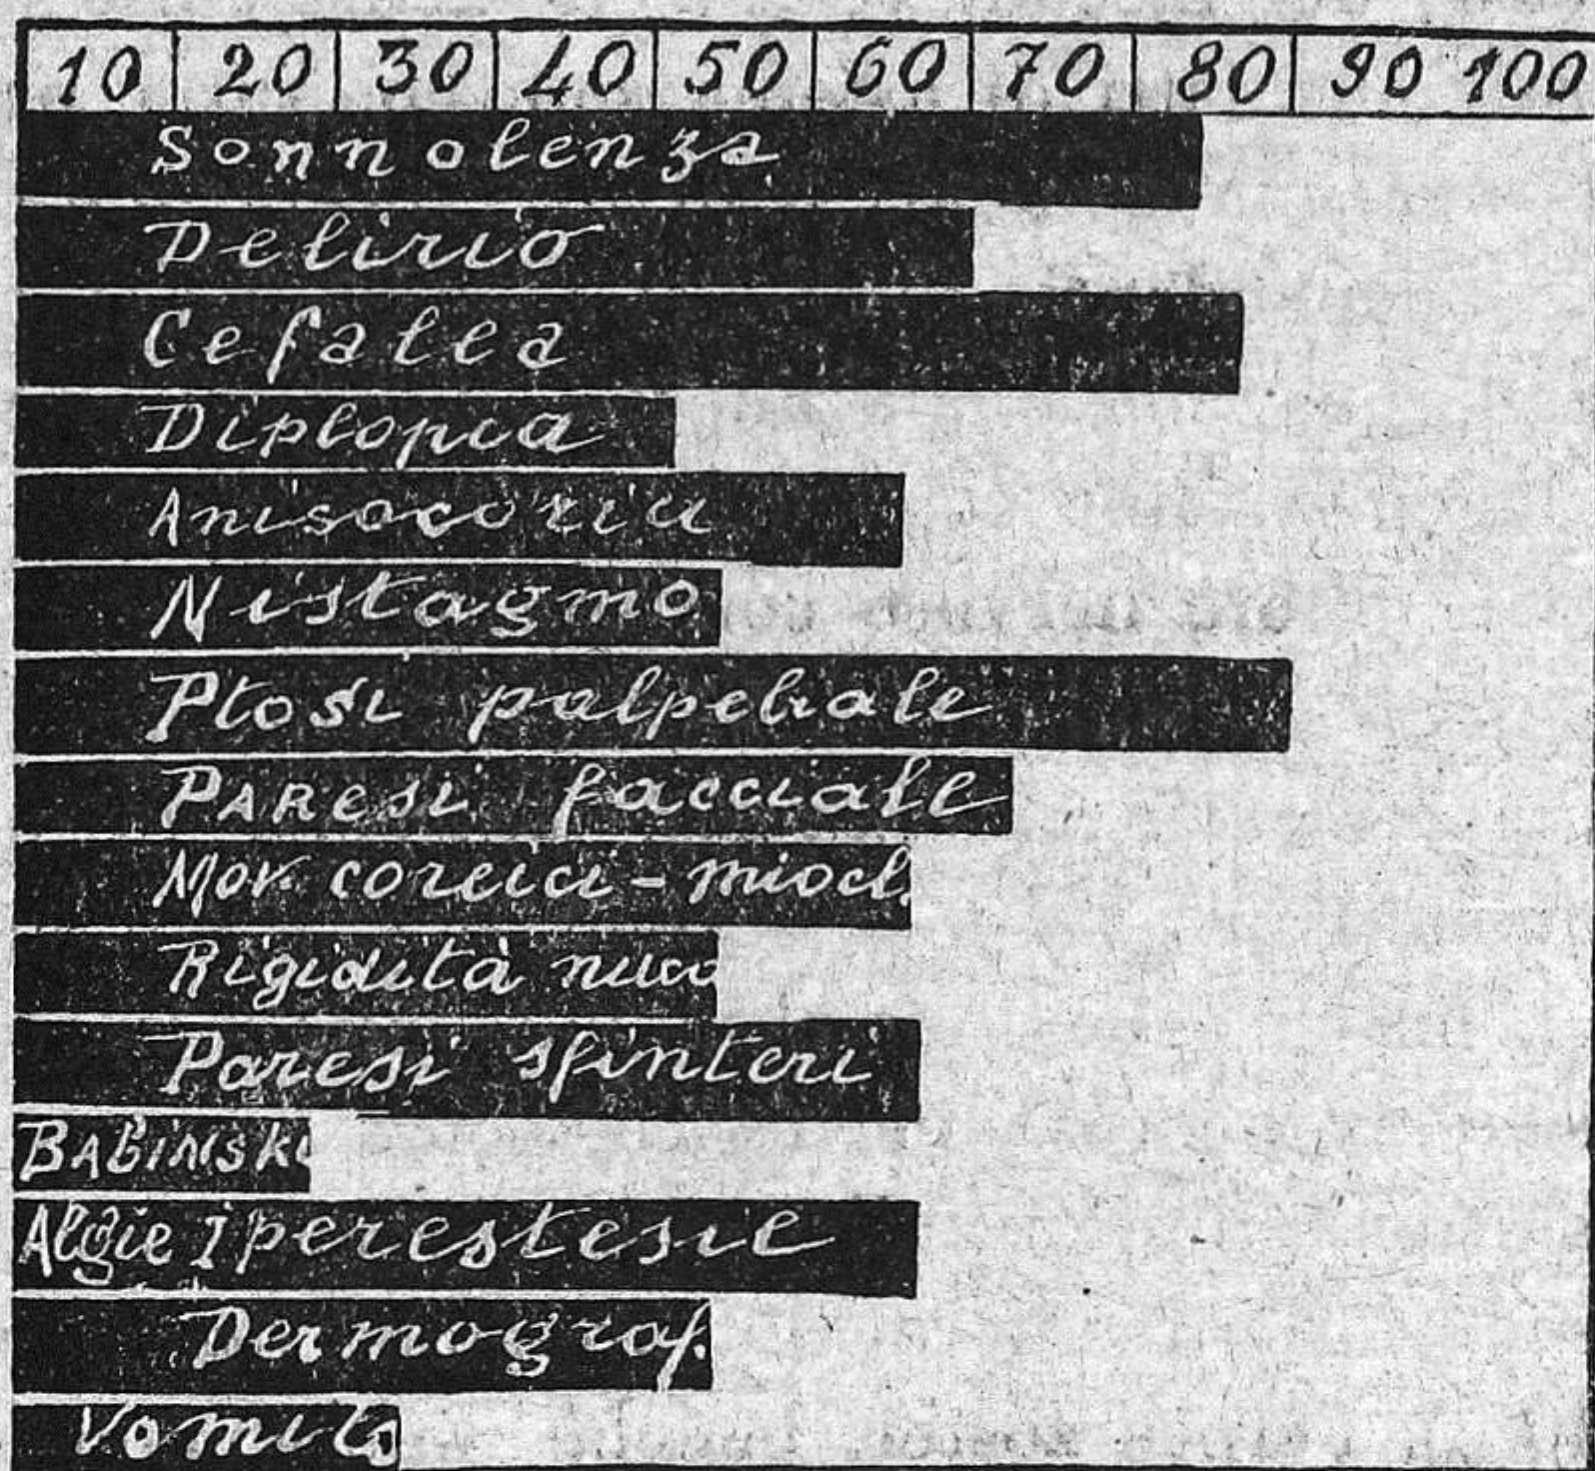 10 20 30 40 50 60 70 80 90 100
Sonnolenza
Delirio
Cefalea
Diplopia
Anisocoria
Nistagmo
Ptosi palpebrale
PARESI facciale
Mov. coreici - miocl.
Rigidità nuca
Paresi sfinteri
BABINSKI
Algie Iperestesie
Dermograf.
Vomito